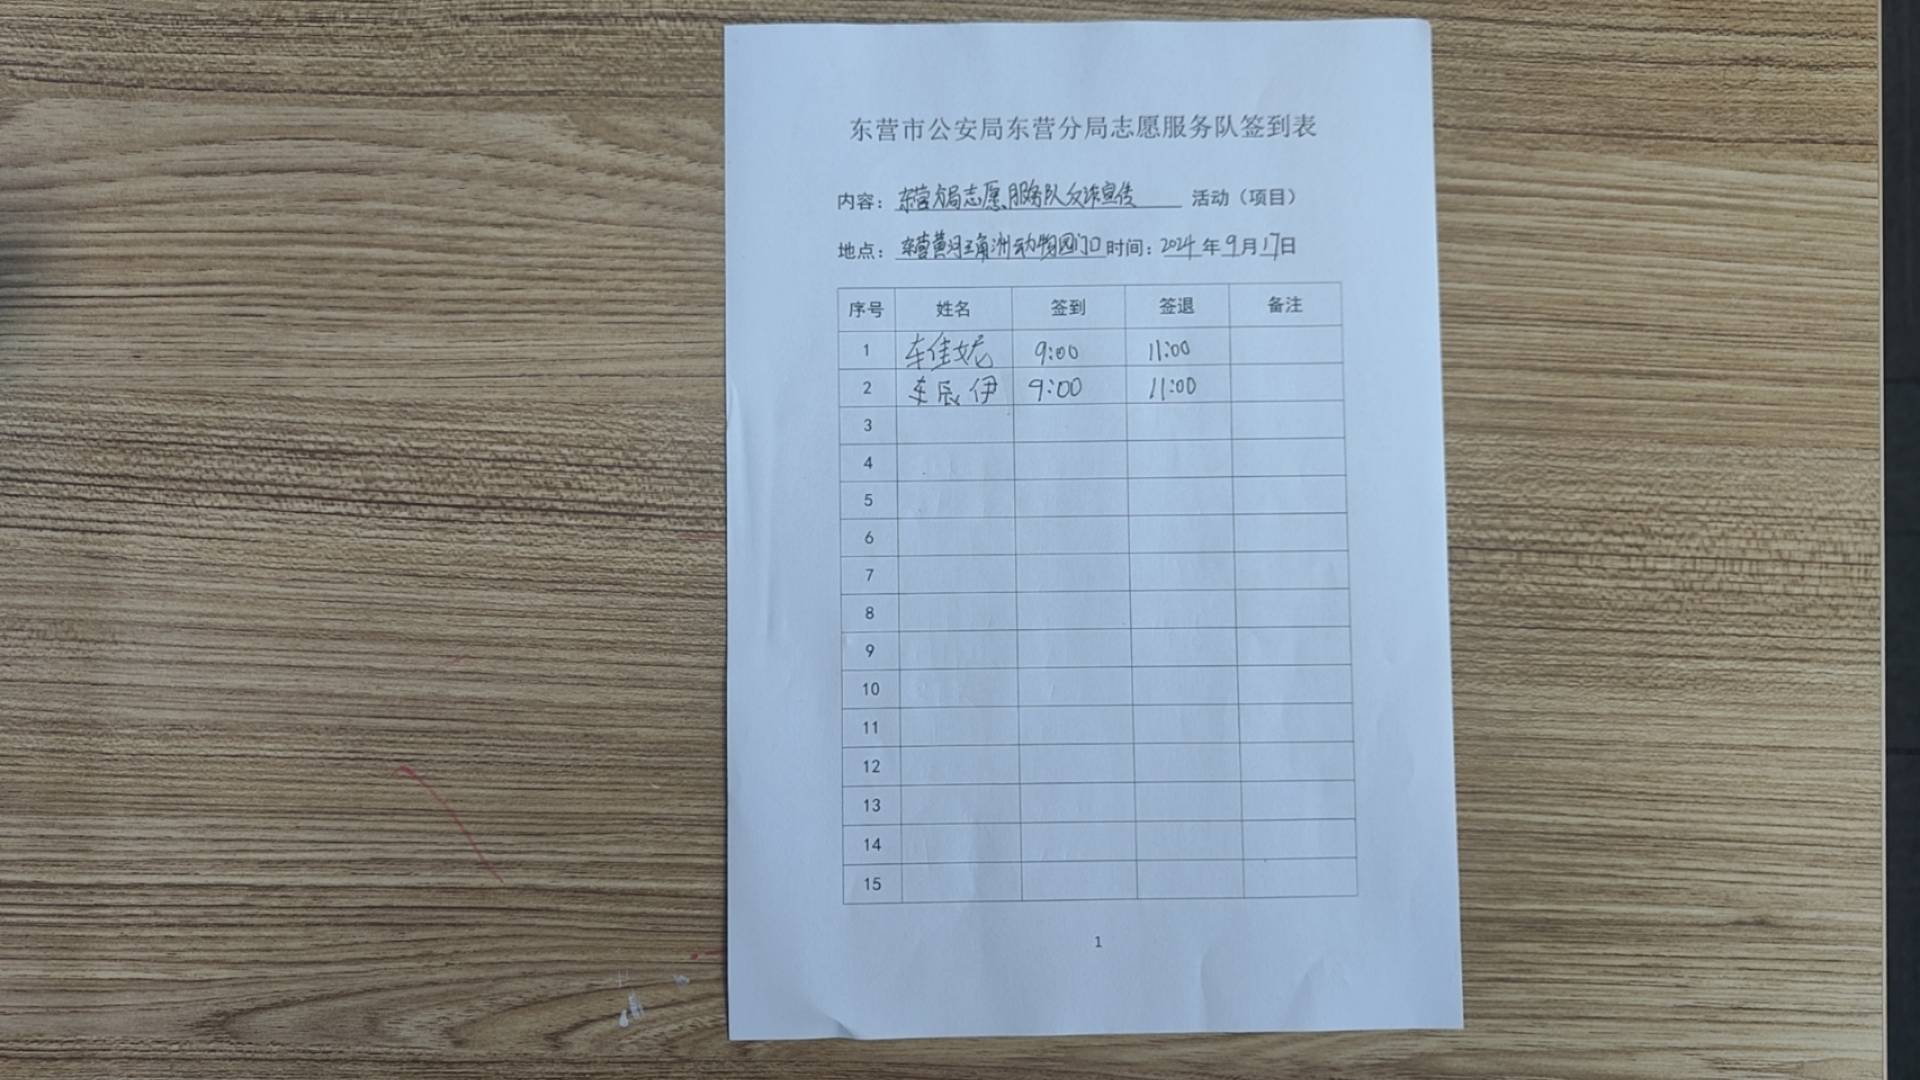 东营市公安局东营分局志愿服务队签到表
内容：东营分局志愿服务队反诈宣传 活动（项目）
地点：东营黄河三角洲动物园门口 时间：2024年9月17日
序号 姓名 签到 签退 备注
1 车佳妮 9:00 11:00
2 车辰伊 9:00 11:00
3
4
5
6
7
8
9
10
11
12
13
14
15
1